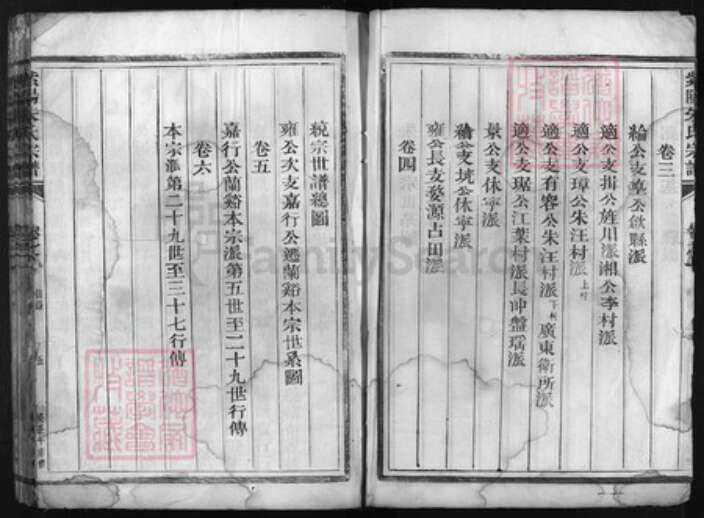 卷三
綸公支 公歙縣派
適公支揖公旌川派湘公李村派
適公支璋公朱汪村派上村
適公支有容公朱汪村派下村廣東衛所派
適公支琚公江葉村派長沖盤瑤派
景公支休寧派
繪公支 公休寧派
雍公長支婺源占田派
卷四
統宗世譜總圖
雍公次支嘉行公遷蘭谿本宗世系圖
卷五
嘉行公蘭谿本宗派第五世至二十九世行傳
卷六
本宗派第二十九世至三十七行傳
紫陽朱氏宗譜
FamilySearch